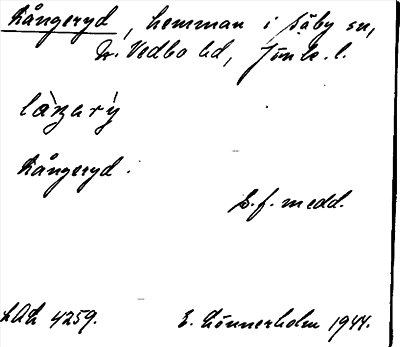 Långeryd, hemman i Säby sn,
N. Vedbo hd, Jönk. l.
Långeryd.
S.f. medd.
LAL 4259. E. Lönnerholm 1944.